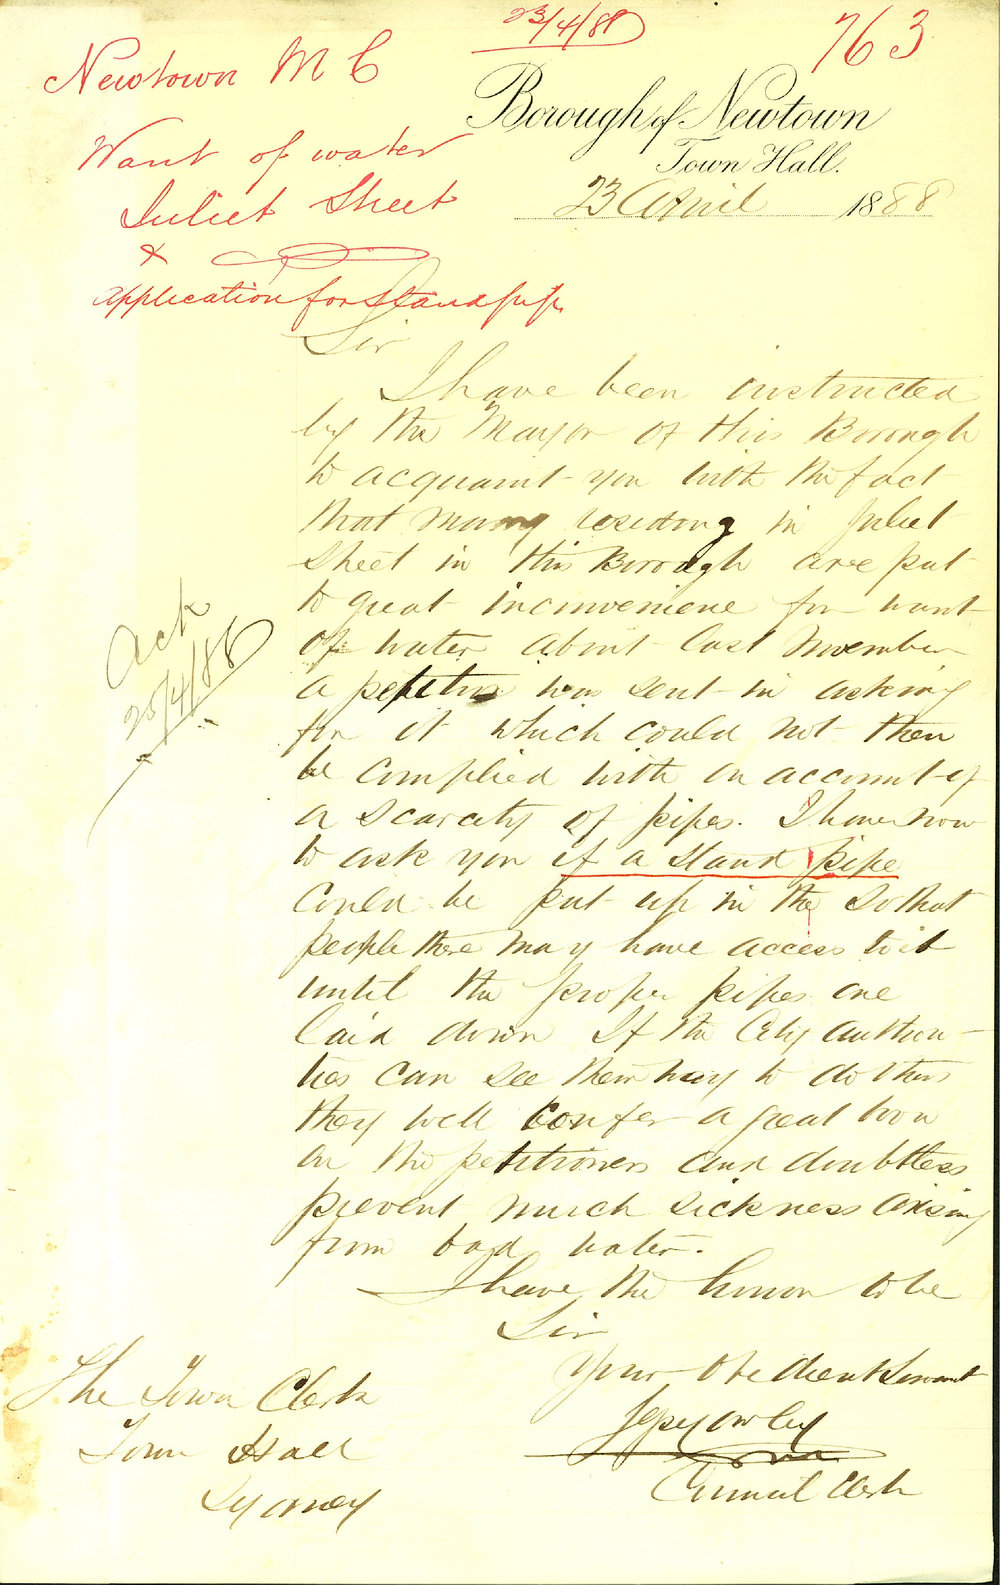 23/4/88
763
Newtown M C
Want of water
Juliet Street
&
Application for Standpipe
Borough of Newtown
Town Hall.
23 April 1888
Sir
I have been instructed
by the Mayor of this Borough
to acquaint you with the fact
that many residing in Juliet
Street in this Borough are put
to great inconvenience for want
of water. About last November
a petition was sent in asking
for it which could not then
be complied with on account of
a scarcity of pipes. I have now
to ask you if a stand pipe
could be put up in the so that
people there may have access to it
until the proper pipes are
laid down If the City author-
ities can see their way to do this
they will confer a great boon
on the petitioners and doubtless
prevent much sickness arising
from bad water.
I have the honor to be
Sir
Your Obedient Servant
Council Clerk
The Town Clerk
Town Hall
Sydney
Ack
25/4/88